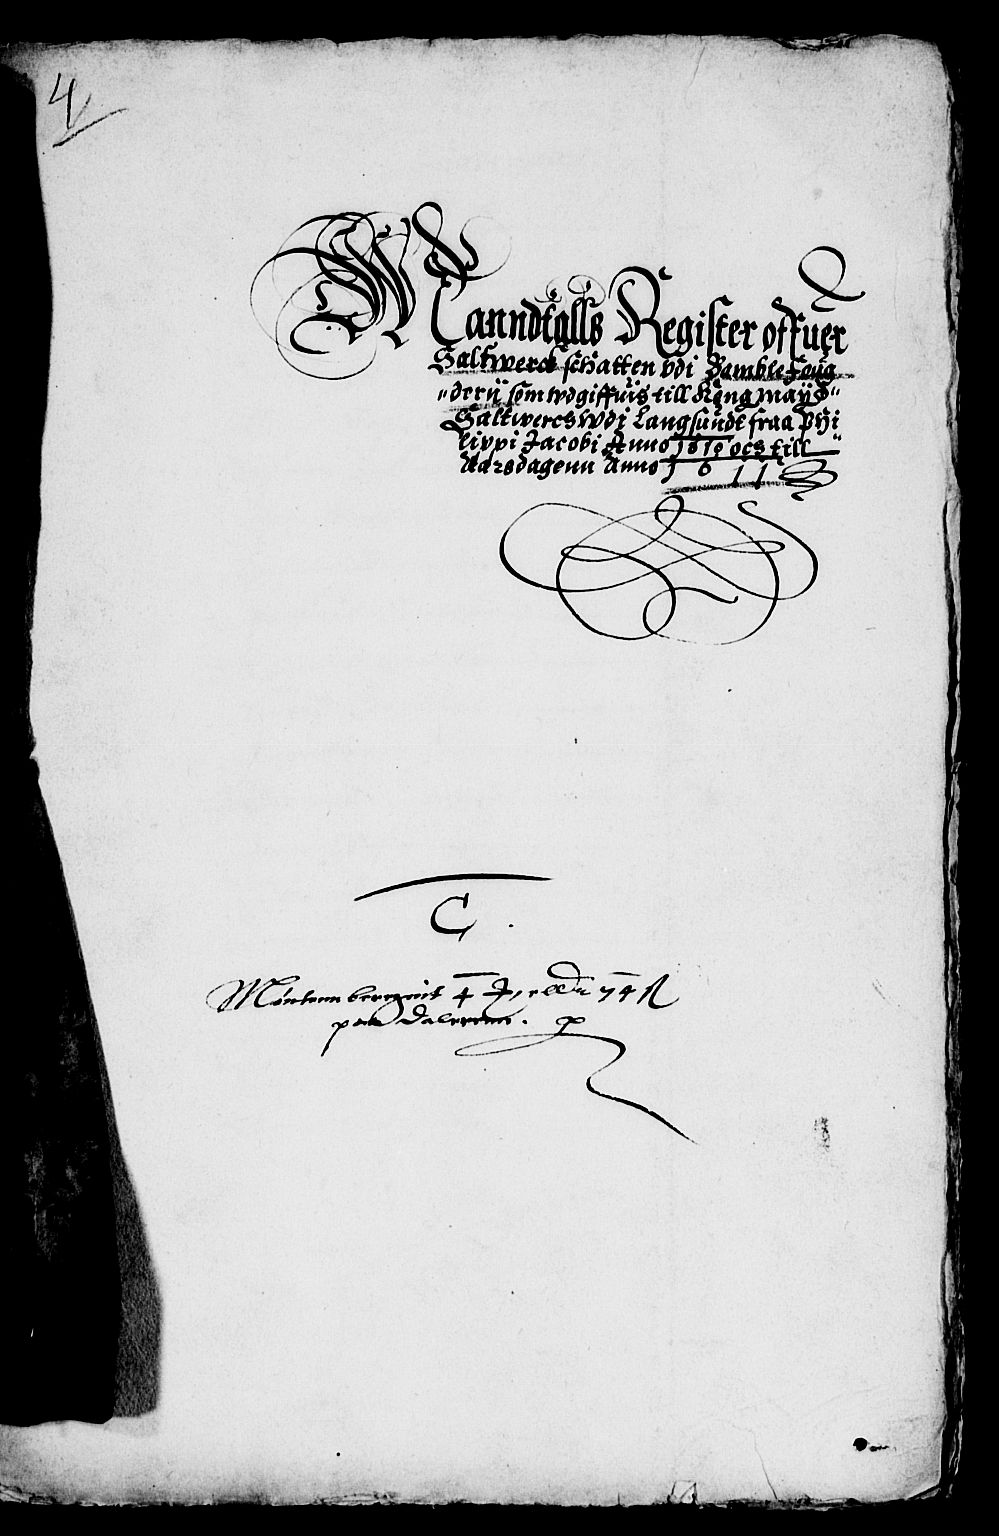 4
Manndtalls Register offuer
Saltwerck schatten vdi Bamble foug
"derij som wdgiffuis till Kong: May: tz"
Saltwercs wdj Langsundt fraa Phi
lippi Jacobi Anno 1610 och till
Aarsdagenn Anno 1611
C.
Mønten beregnit 4
paa Daleren.